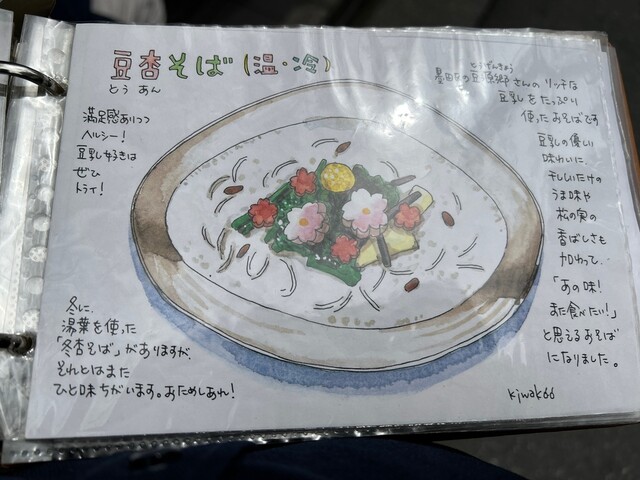 豆杏そば(温・冷)
とうあん
満足感ありつつ
ヘルシー!
豆乳好きは
ぜひ
トライ!
とうげんきょう
墨田区の豆源郷さんのリッチな
豆乳をたっぷり
使ったおそばです
豆乳の優しい
味わいに
干ししいたけの
うま味や
松の実の
香ばしさも
加わって…
「あの味!
また食べたい!」
と思えるおそば
になりました。
冬に、
湯葉を使った
「冬杏そば」がありますが、
それとはまた
ひと味ちがいます。おためしあれ!
kiwak66